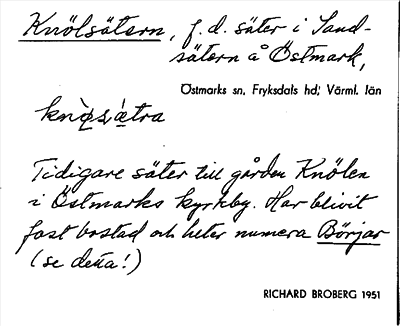 Knölsätern, f.d. säter i Sand-
sätern å Östmark,
Östmarks sn, Fryksdals hd, Värml. län
knö̀sǝ̣ætra
Tidigare säter till gården Knölen
i Östmarks kyrkby. Har blivit
fast bostad och heter numera Börjar
(se detta!)
RICHARD BROBERG 1951